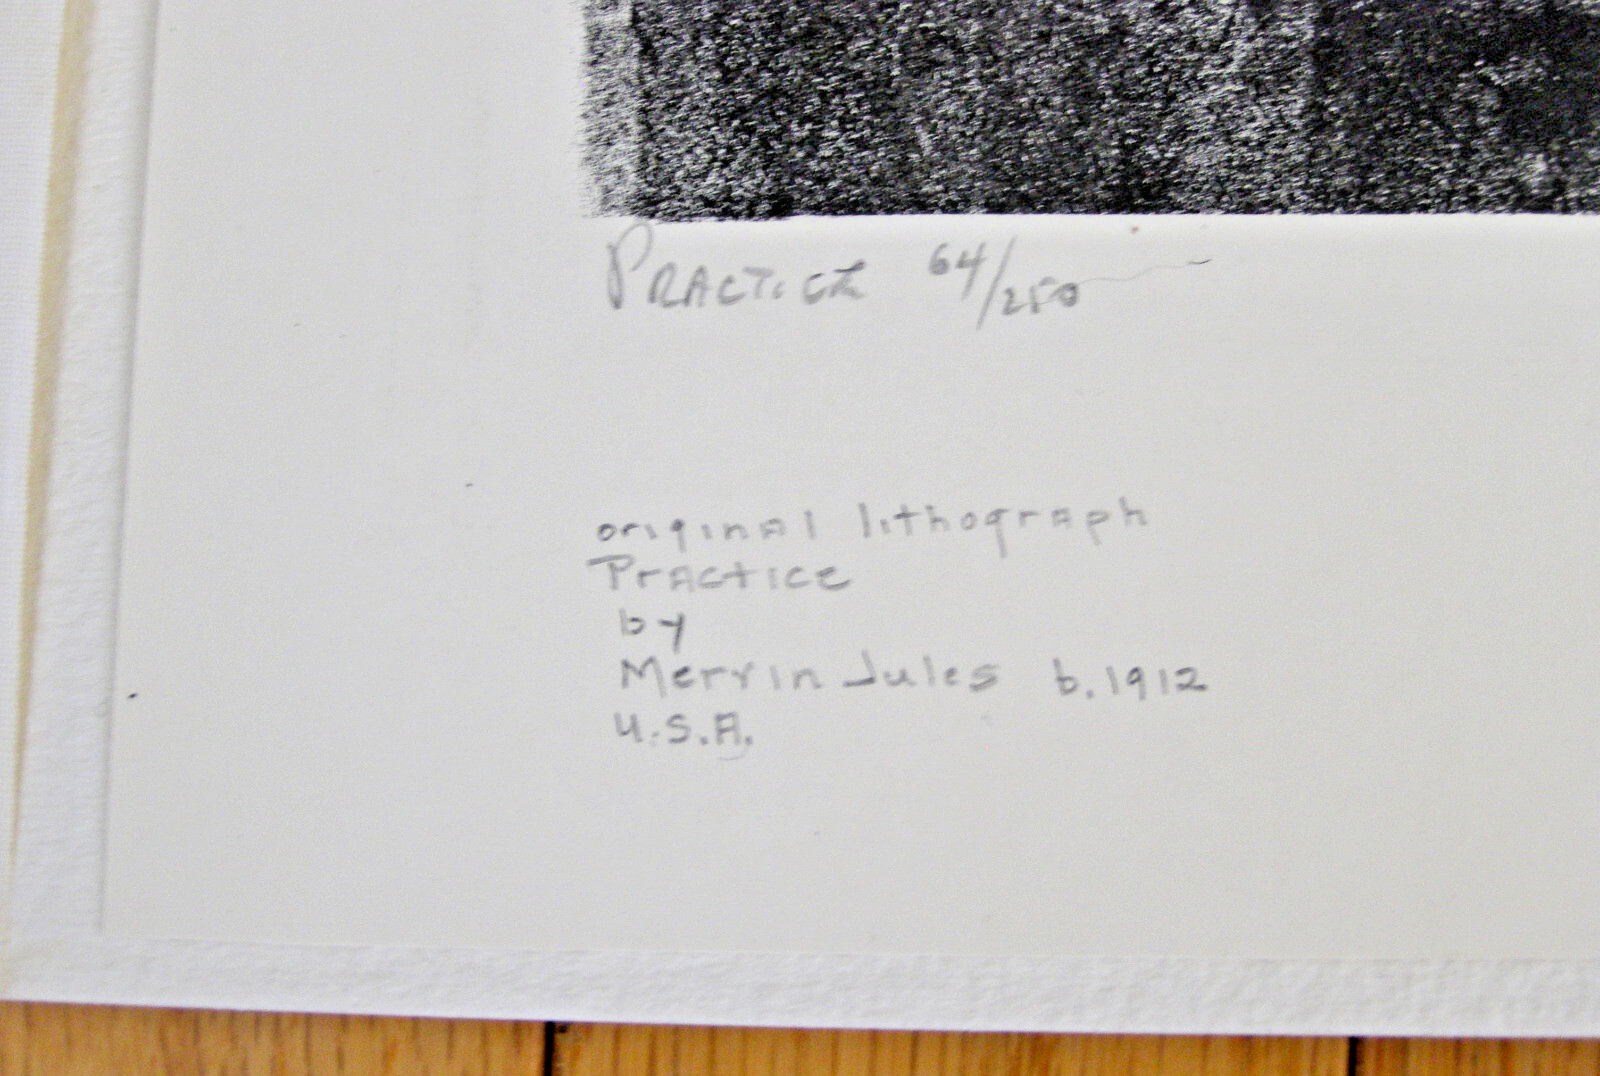 PRACTICE 64/250
original lithograph
Practice
by
Mervin Jules b. 1912
U.S.A.